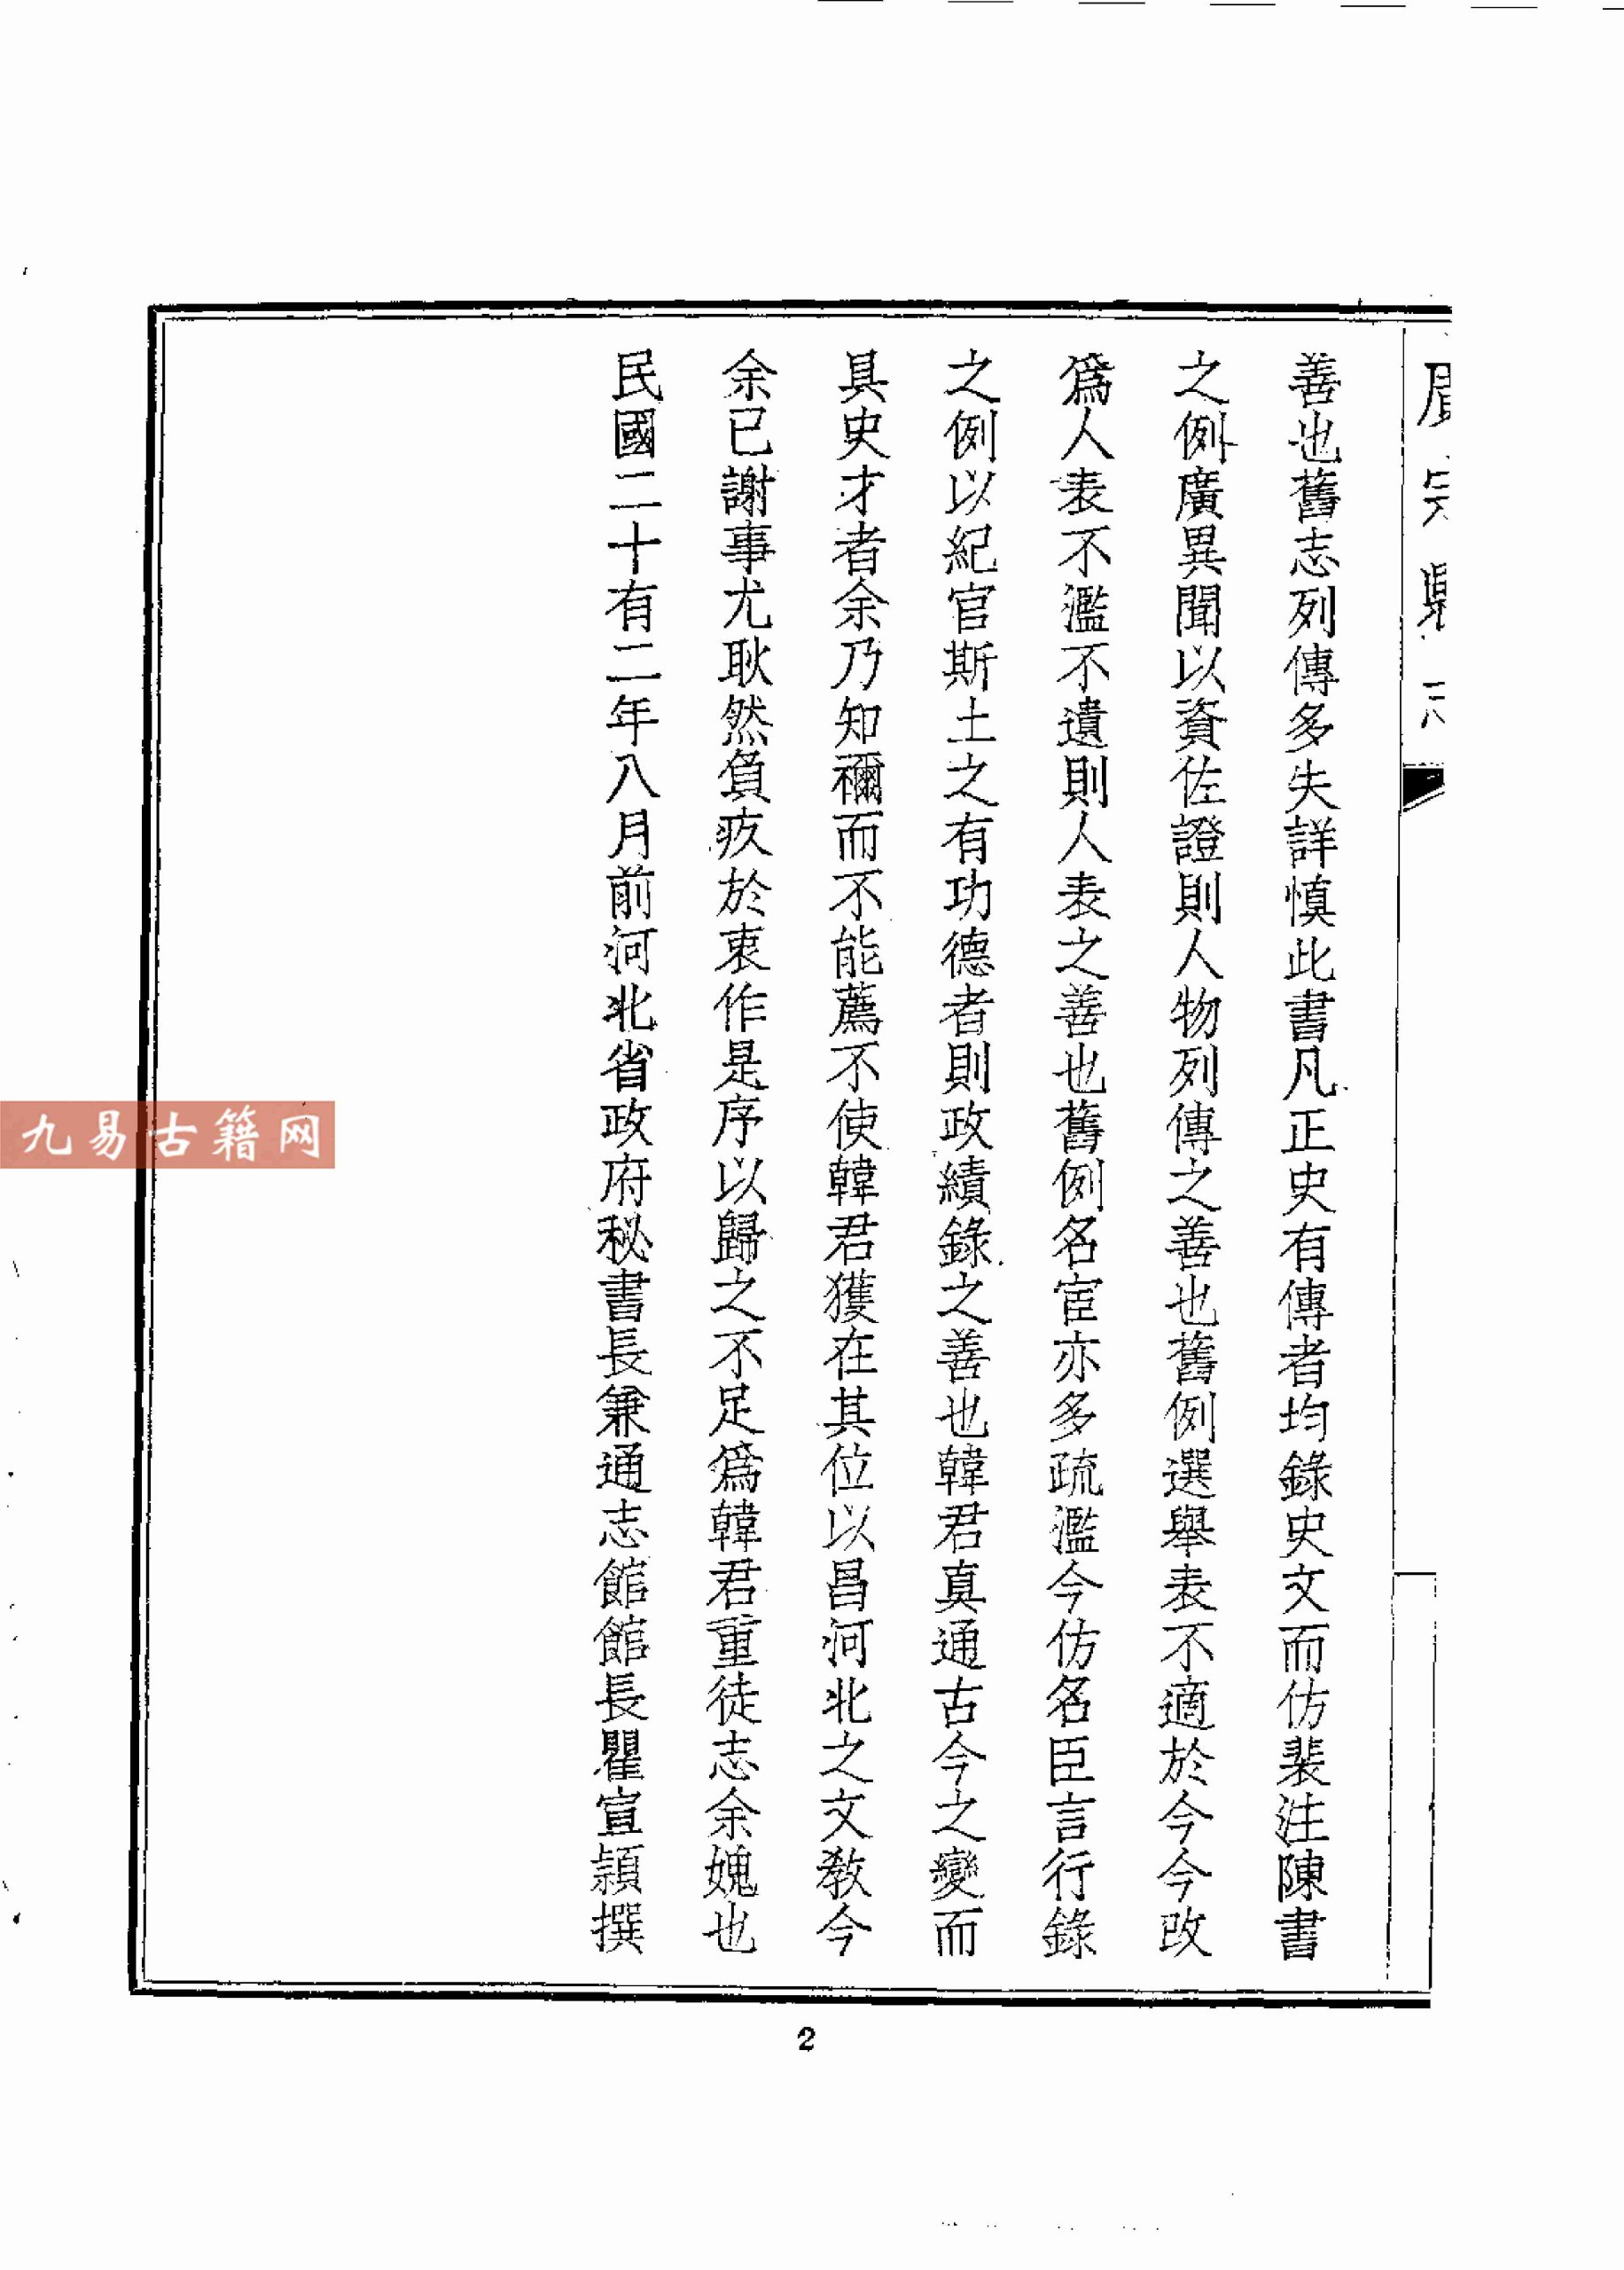 善也舊志列傳多失詳慎此書凡正史有傳者均錄史文而仿裴注陳書
之例廣異聞以資佐證則人物列傳之善也舊例選舉表不適於今今改
爲人表不濫不遺則人表之善也舊例名宦亦多疏濫今仿名臣言行錄
之例以紀官斯土之有功德者則政績錄之善也韓君真通古今之變而
具史才者余乃知禰而不能薦不使韓君獲在其位以昌河北之文教今
余已謝事尤耿然負疚於衷作是序以歸之不足爲韓君重徒志余媿也
民國二十有二年八月前河北省政府秘書長兼通志館館長瞿宣穎撰
2
九易古籍网